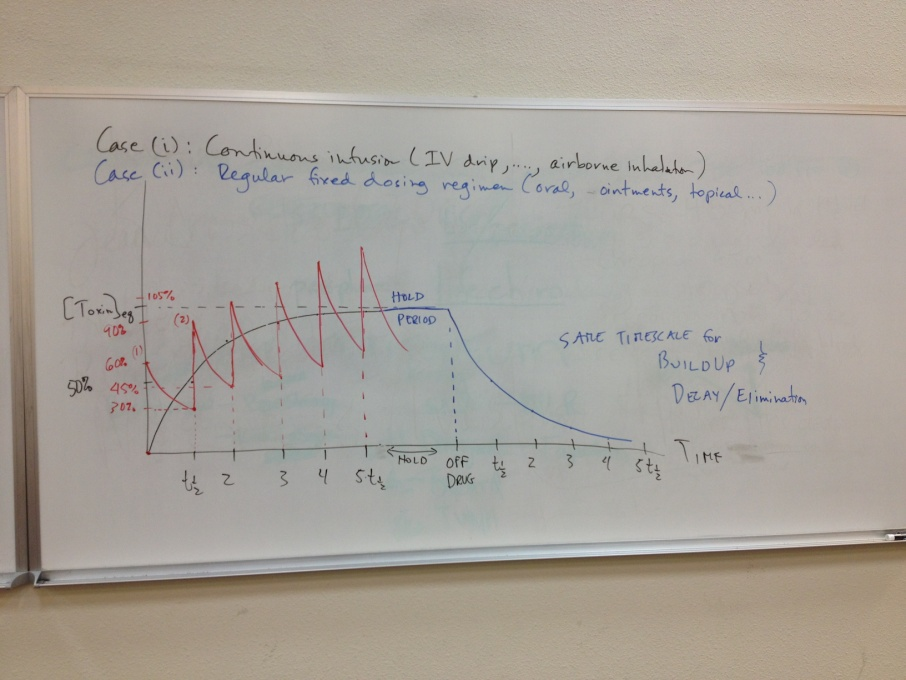 Case (i): Continuous infusion (IV drip, ...., airborne inhalation)
Case (ii): Regular fixed dosing regimen (oral, ointments, topical...)
105%
[Toxin]eq
90%
(2)
60% (1)
50%
45%
30%
HOLD
PERIOD
SAME TIMESCALE for
BUILDUP &
DECAY/Elimination
t½ 2 3 4 5t½
HOLD
OFF
DRUG
t½ 2 3 4 5t½
TIME